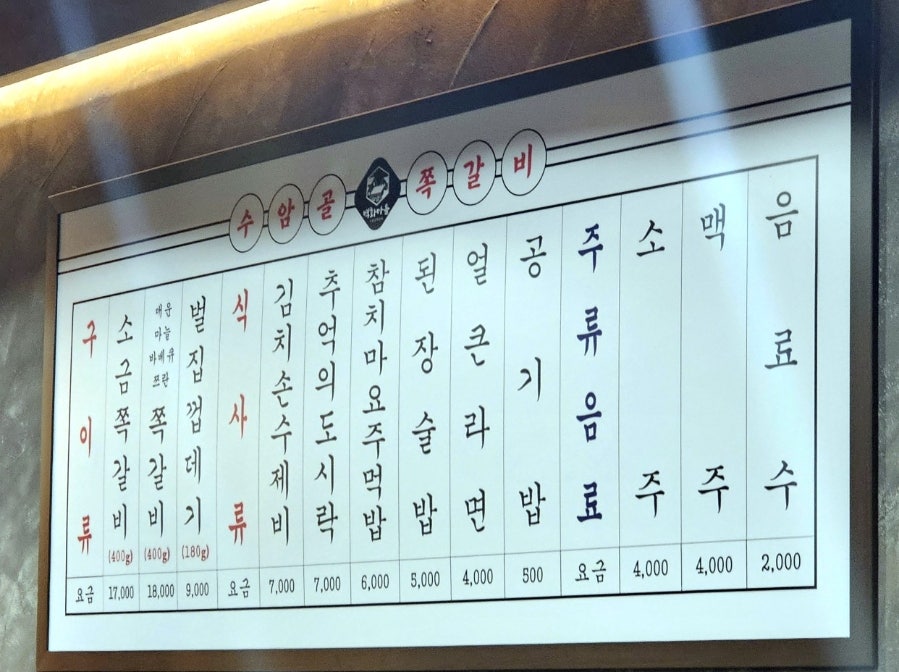 수암골 벽화마을 쪽갈비
구이류
소금쪽갈비 (400g)
매운 마늘 바베큐 쯔란 쪽갈비 (400g)
벌집껍데기 (180g)
식사류
김치손수제비
추억의도시락
참치마요주먹밥
된장술밥
얼큰라면
공기밥
주류음료
소주
맥주
음료수
요금 17,000 18,000 9,000 요금 7,000 7,000 6,000 5,000 4,000 500 요금 4,000 4,000 2,000